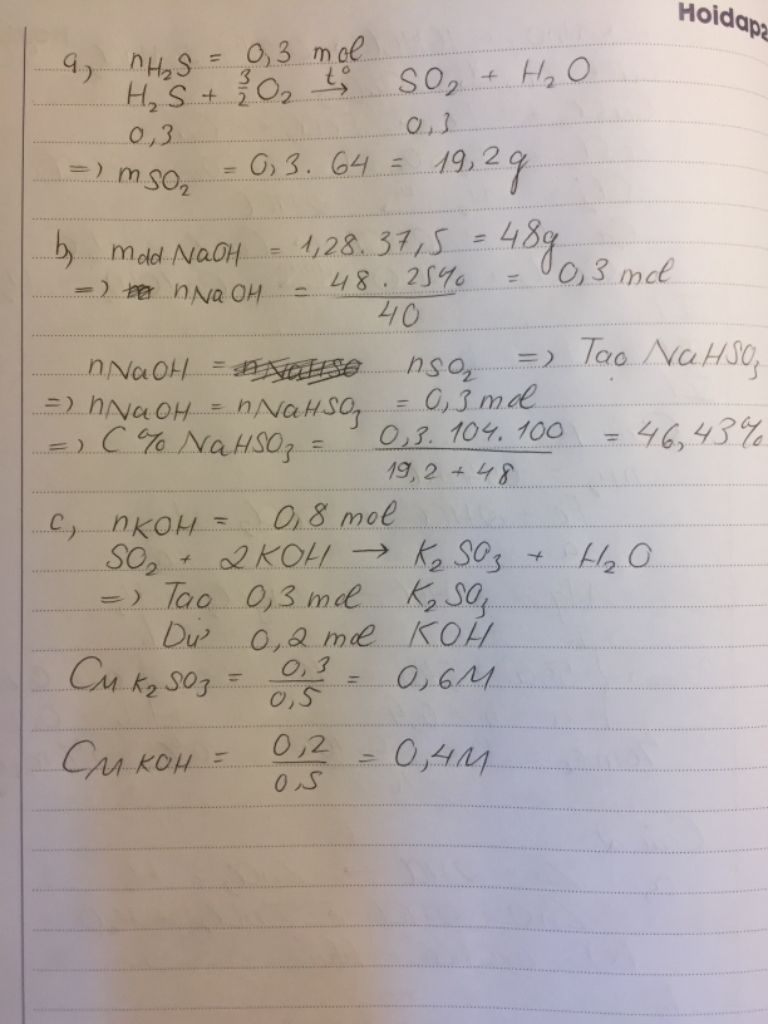 Hoidap2
a, nH2S = 0,3 mol
H2S + 3/2 O2 t°→ SO2 + H2O
0,3 0,3
=> mSO2 = 0,3. 64 = 19,2g
b, mdd NaOH = 1,28. 37,5 = 48g
=> nNaOH = 48 . 25% / 40 = 0,3 mol
nNaOH = nSO2 => Tạo NaHSO3
=> nNaOH = nNaHSO3 = 0,3 mol
=> C% NaHSO3 = 0,3. 104. 100 / 19,2 + 48 = 46,43%
c, nKOH = 0,8 mol
SO2 + 2KOH → K2SO3 + H2O
=> Tạo 0,3 mol K2SO3
Dư 0,2 mol KOH
CM K2SO3 = 0,3 / 0,5 = 0,6M
CM KOH = 0,2 / 0,5 = 0,4M